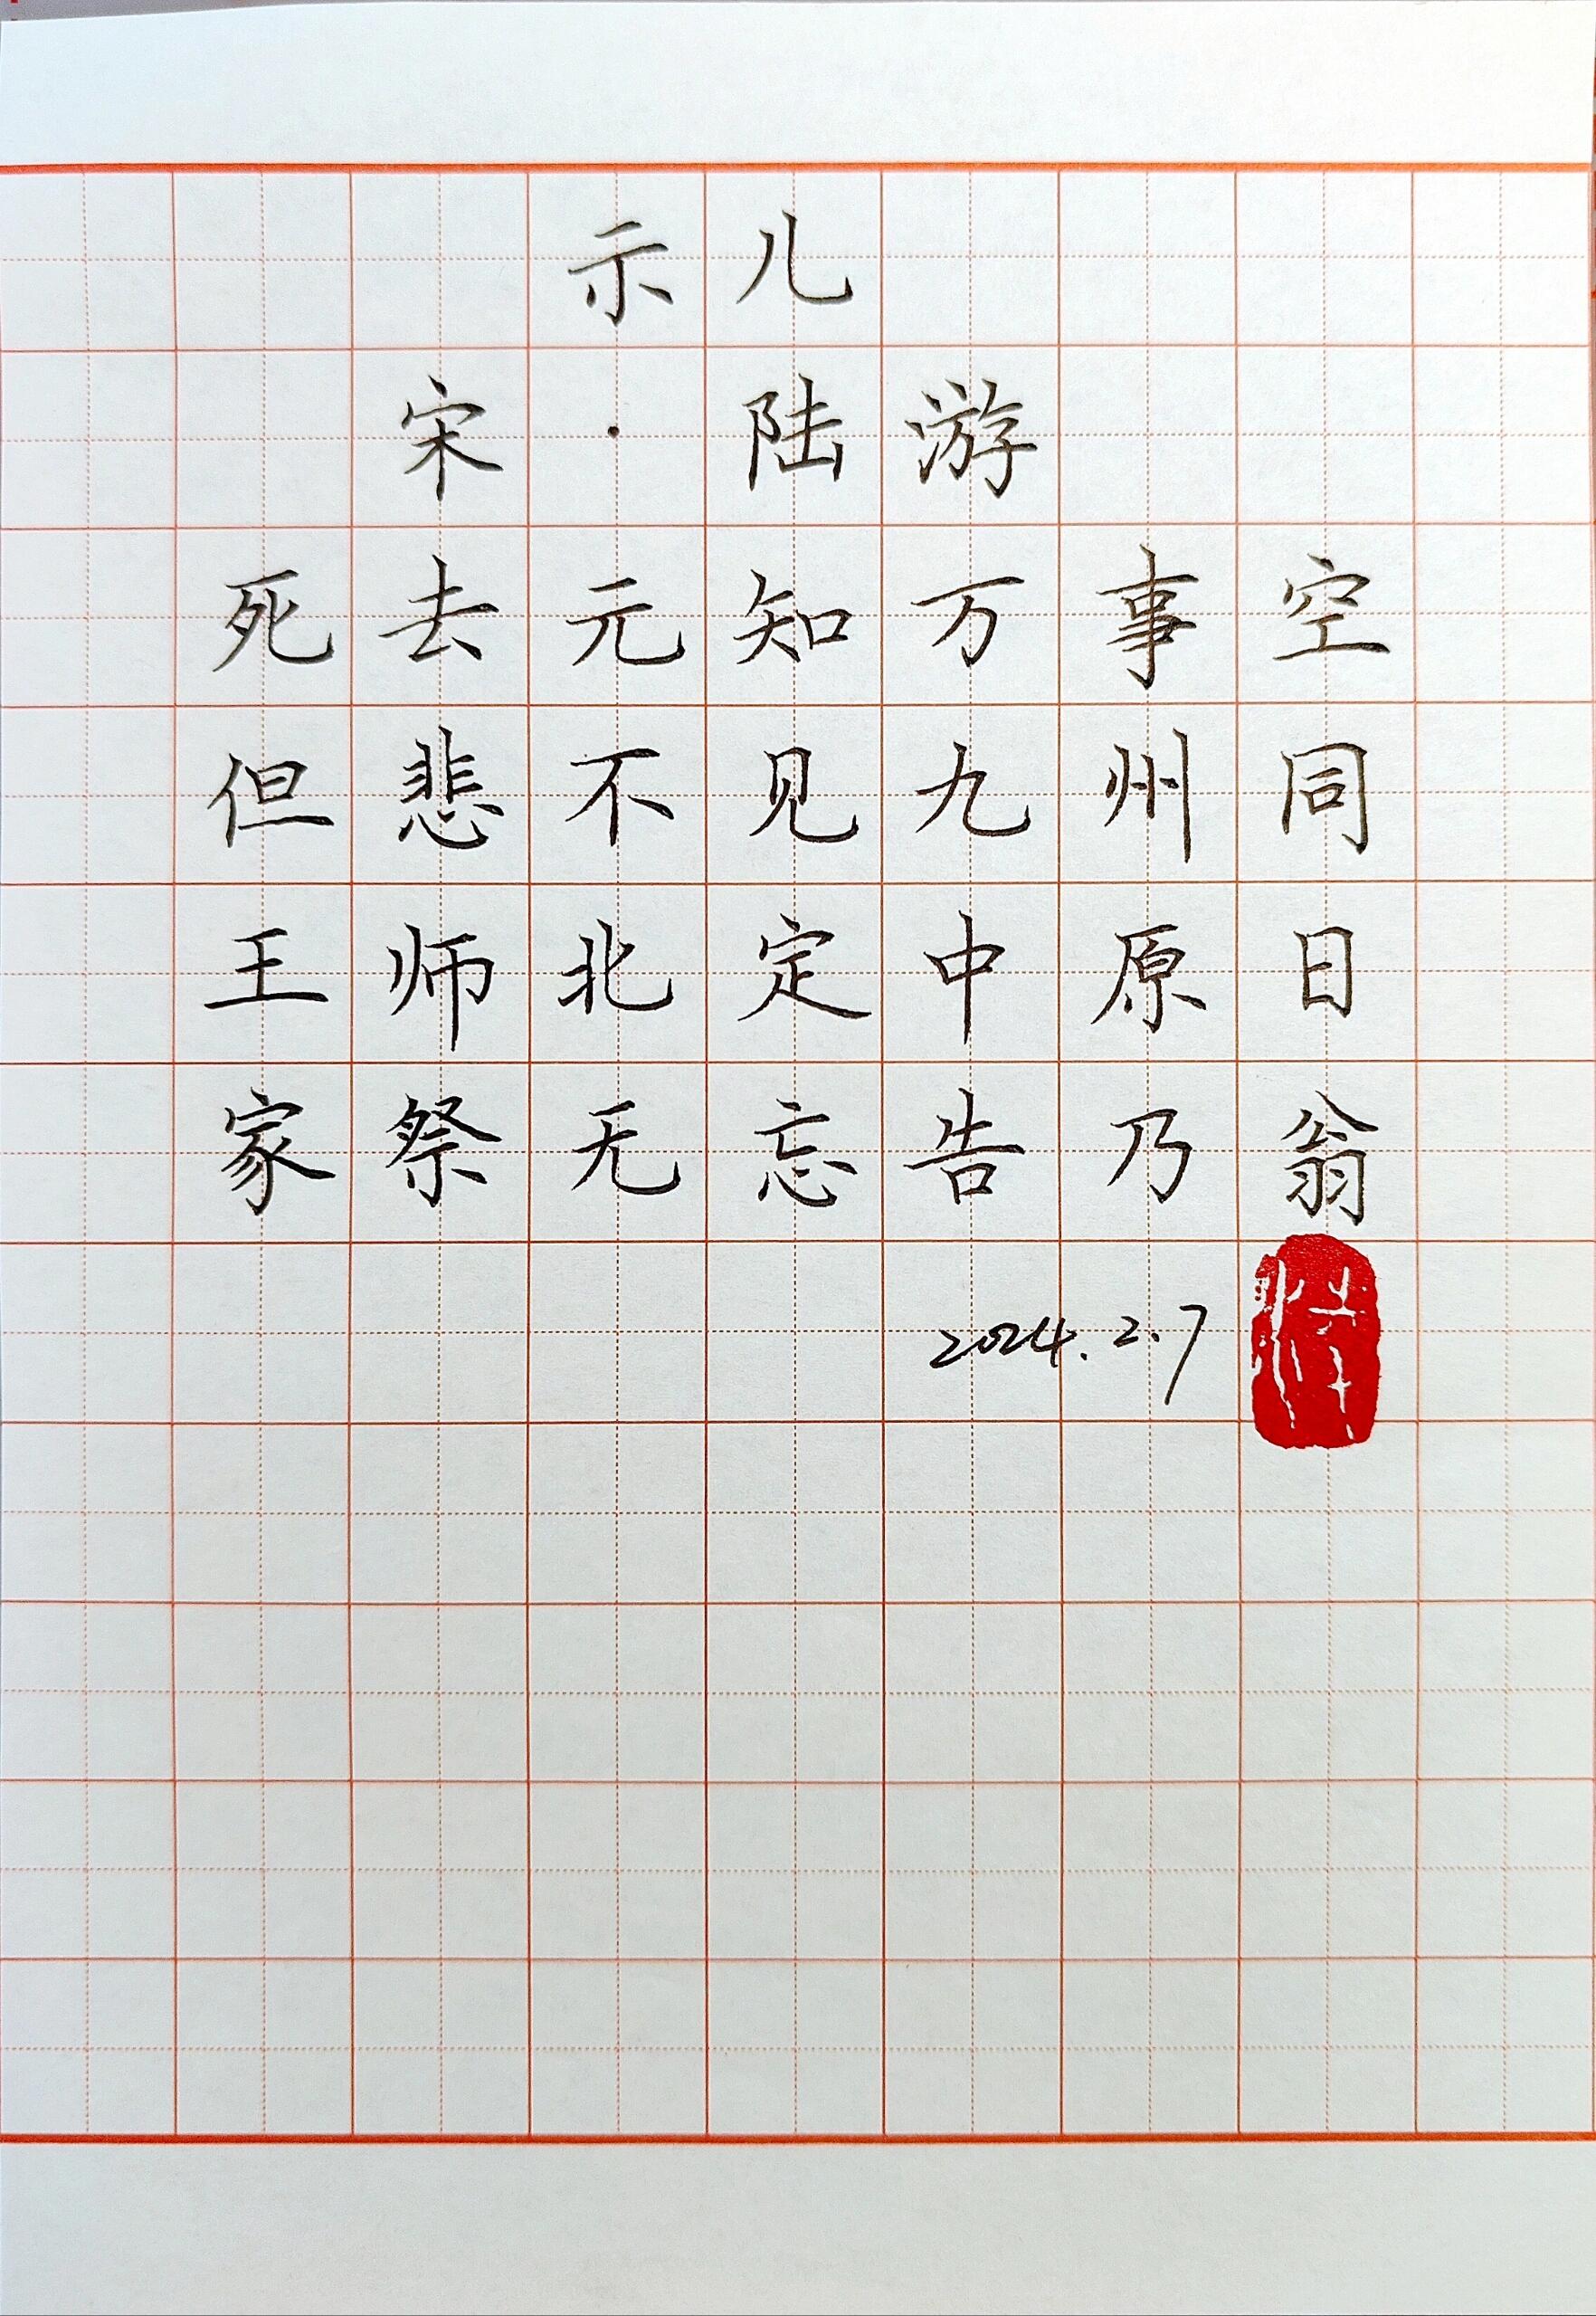 示儿
宋·陆游
死去元知万事空
但悲不见九州同
王师北定中原日
家祭无忘告乃翁
2024.2.7